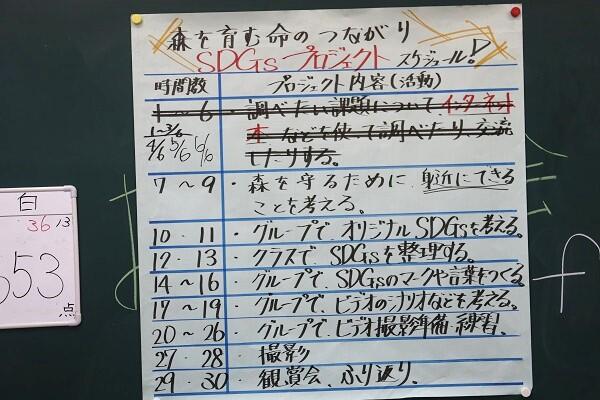 森を育む命のつながり
SDGsプロジェクト スケジュール!
時間数 プロジェクト内容(活動)
1 ~ 6 ・調べたい課題について、インターネット
1~3/6 本 などを使って調べたり、交流
4/6 5/6 6/6 したりする。
7 ~ 9 ・森を守るために、身近にできる
ことを考える。
10・11 ・グループで、オリジナルSDGsを考える。
12・13 ・クラスで、SDGsを整理する。
14~16 ・グループで、SDGsのマークや言葉をつくる。
17~19 ・グループで、ビデオのシナリオなどを考える。
20~26 ・グループで、ビデオ撮影準備・練習。
27・28 ・撮影
29・30 ・観賞会、ふり返り。
白
36 13
53
点